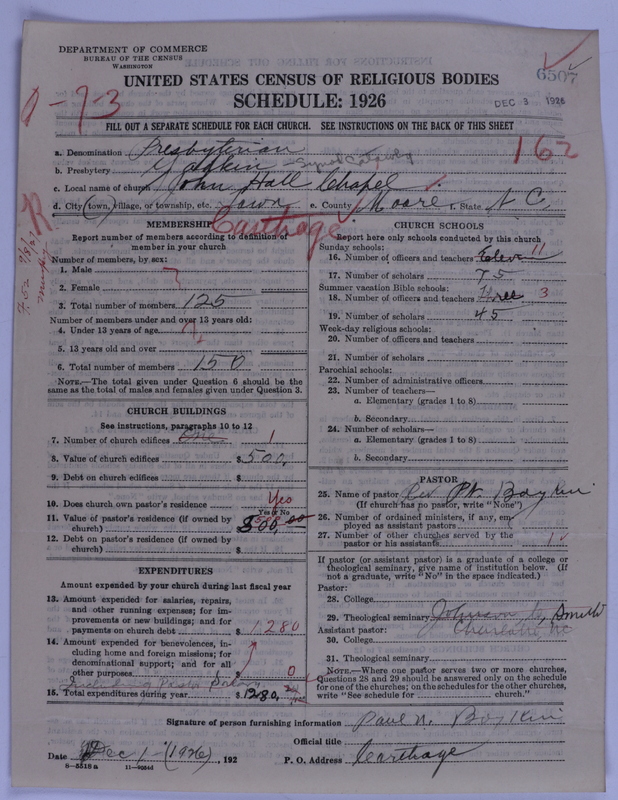 DEPARTMENT OF COMMERCE
BUREAU OF THE CENSUS
WASHINGTON
UNITED STATES CENSUS OF RELIGIOUS BODIES
SCHEDULE: 1926
6507
DEC 3 1926
FILL OUT A SEPARATE SCHEDULE FOR EACH CHURCH. SEE INSTRUCTIONS ON THE BACK OF THIS SHEET
a. Denomination Presbyterian 162
b. Presbytery Yadkin - Synod Catawba
c. Local name of church John Hall Chapel
d. City (town), village, or township, etc. Town e. County Moore f. State N C.
Carthage
MEMBERSHIP
Report number of members according to definition of
member in your church
Number of members, by sex:
1. Male
2. Female
3. Total number of members 125
Number of members under and over 13 years old:
4. Under 13 years of age
5. 13 years old and over
6. Total number of members 150
NOTE.—The total given under Question 6 should be the
same as the total of males and females given under Question 3.
CHURCH BUILDINGS
See instructions, paragraphs 10 to 12
7. Number of church edifices One 1
8. Value of church edifices $ 500.
9. Debt on church edifices $
10. Does church own pastor's residence Yes
Yes or No
11. Value of pastor's residence (if owned by
church) $ 500.00
12. Debt on pastor's residence (if owned by
church) $
EXPENDITURES
Amount expended by your church during last fiscal year
13. Amount expended for salaries, repairs,
and other running expenses; for im-
provements or new buildings; and for
payments on church debt $ 1280
14. Amount expended for benevolences, in-
cluding home and foreign missions; for
denominational support; and for all
other purposes 0
Including
15. Total expenditures during year $ 1280.
CHURCH SCHOOLS
Report here only schools conducted by this church
Sunday schools:
16. Number of officers and teachers Eleven 11
17. Number of scholars 75
Summer vacation Bible schools:
18. Number of officers and teachers Three 3
19. Number of scholars 45
Week-day religious schools:
20. Number of officers and teachers
21. Number of scholars
Parochial schools:
22. Number of administrative officers
23. Number of teachers—
a. Elementary (grades 1 to 8)
b. Secondary
24. Number of scholars—
a. Elementary (grades 1 to 8)
b. Secondary
PASTOR
25. Name of pastor Rev. P.N. Boykin
(If church has no pastor, write "None")
26. Number of ordained ministers, if any, em-
ployed as assistant pastors
27. Number of other churches served by the
pastor or his assistants 1
If pastor (or assistant pastor) is a graduate of a college or
theological seminary, give name of institution below. (If
not a graduate, write "No" in the space indicated.)
Pastor:
28. College
29. Theological seminary Johnson C. Smith
Assistant pastor: Charlotte NC
30. College
31. Theological seminary
NOTE.—Where one pastor serves two or more churches,
Questions 28 and 29 should be answered only on the schedule
for one of the churches; on the schedules for the other churches,
write "See schedule for church."
Signature of person furnishing information Paul N. Boykin
Official title
Date Dec 1 - (1926), 192 P. O. Address Carthage
8-5518 a